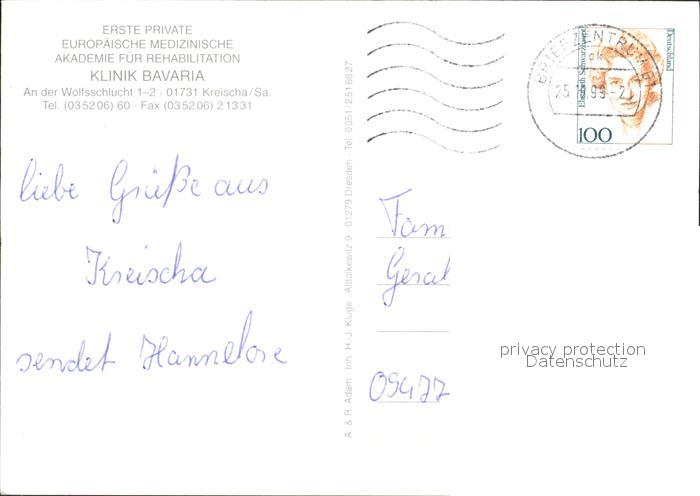 ERSTE PRIVATE
EUROPÄISCHE MEDIZINISCHE
AKADEMIE FÜR REHABILITATION
KLINIK BAVARIA
An der Wolfsschlucht 1–2 · 01731 Kreischa/Sa.
Tel. (03 52 06) 60 · Fax (03 52 06) 2 13 31
liebe Grüße aus
Kreischa
sendet Hannelore
A. & R. Adam · Inh. H.-J. Kluge · Alttolkewitz 9 · 01279 Dresden · Tel. 0351/2516827
BRIEFZENTRUM
Elisabeth Schwarzhaupt
Deutschland
100
Fam
Geral
09477
privacy protection
Datenschutz